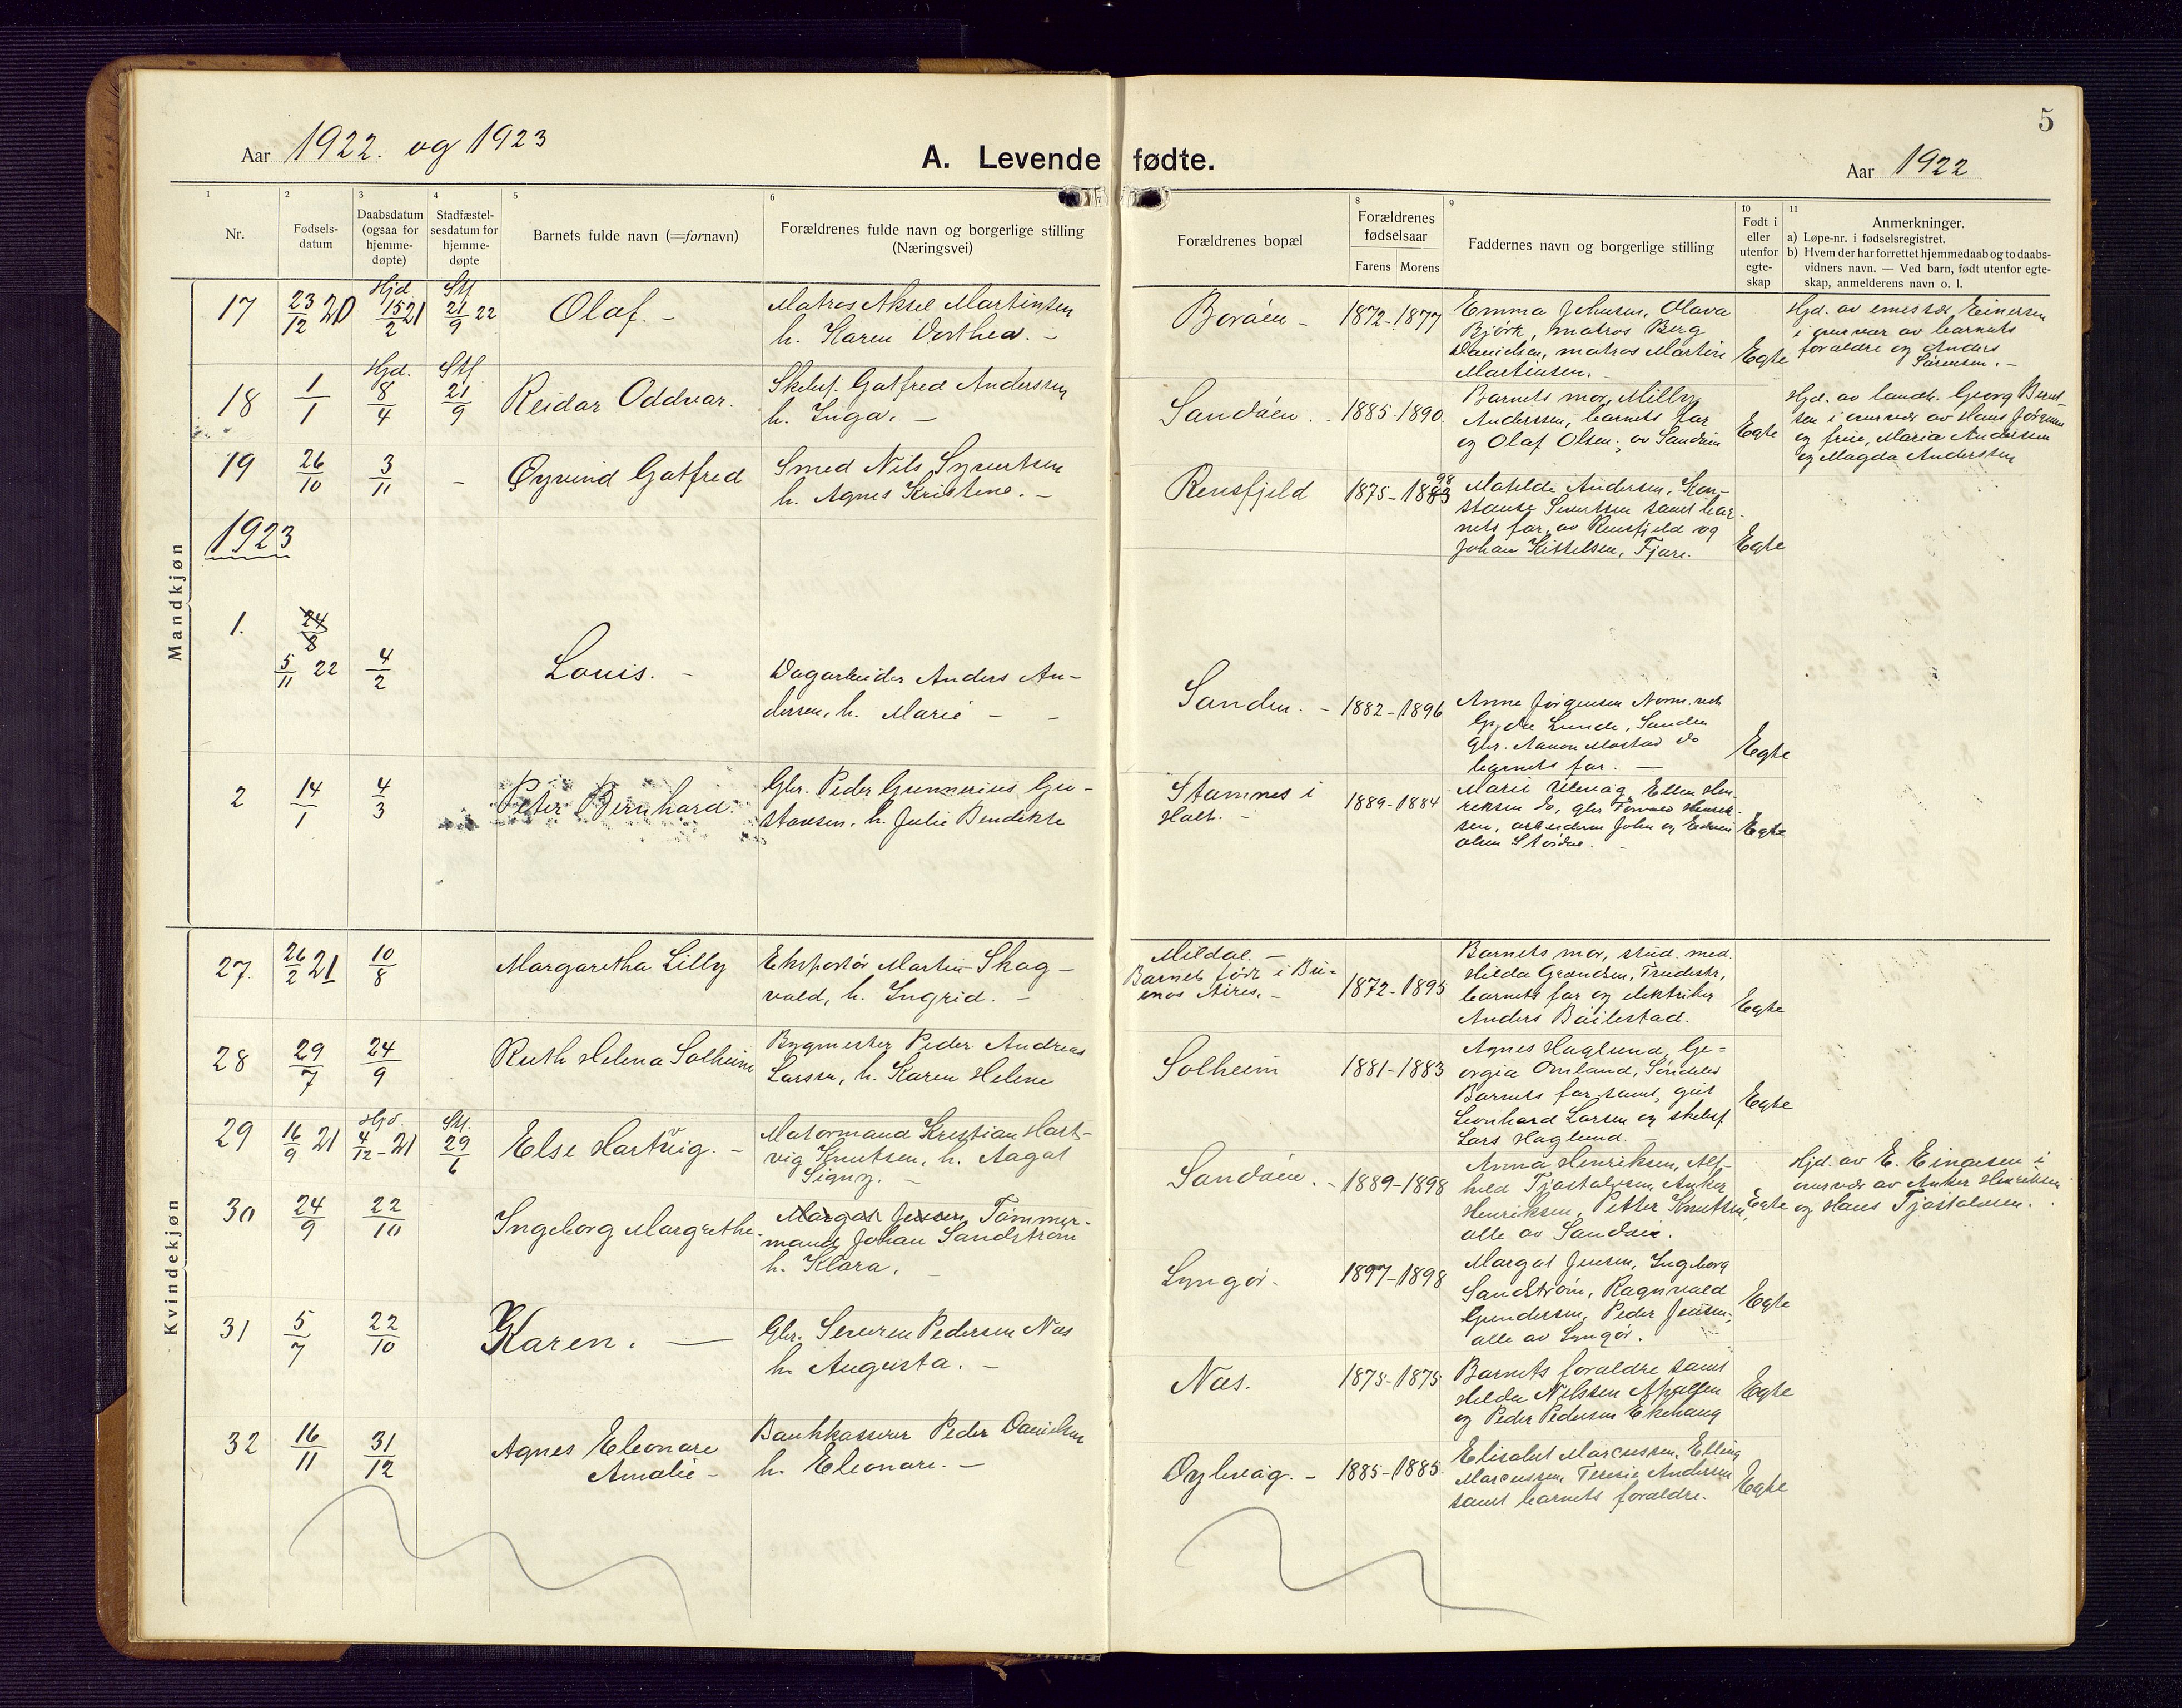 5
Aar 1922. og 1923
A. Levende fødte.
Aar 1922
1 2 3 4 5 6 8 9 10 11
Nr.
Fødsels-
datum
Daabsdatum
(ogsaa for
hjemme-
døpte)
Stadfæstel-
sesdatum for
hjemme-
døpte
Barnets fulde navn (=fornavn)
Forældrenes fulde navn og borgerlige stilling
(Næringsvei)
Forældrenes bopæl
Forældrenes
fødselsaar
Farens Morens
Faddernes navn og borgerlige stilling
Født i
eller
utenfor
egte-
skap
Anmerkninger.
a) Løpe-nr. i fødselsregistret.
b) Hvem der har forrettet hjemmedaab og to daabs-
vidners navn. — Ved barn, født utenfor egte-
skap, anmelderens navn o. l.
Mandkjøn
17 23/12 20 Hjd 15/2 21 Stf 21/9 22 Olaf. -
Matros Aksel Martinsen
h. Karen Dorthea. -
Borøen - 1872-1877
Emma Johnsen, Olava
Björk, matros Berg
Danielsen, matros Martin
Martinsen. -
Egte
Hjd. av Einersen
i nærvær av barnets
forældre og Anders
Sørensen. -
18 1/1 Hjd. 8/4 Stf 21/9 Reidar Oddvar.
Gotfred Anderssen
h. Inga. -
Sandøen. 1885-1890.
Barnets mor, Milly
Anderssen, barnets far
og Olaf Olsen, av Sandøen
Egte
Hjd. av landh. Georg Bernt-
sen i nærvær av Hans Jørgensen
og frue, Maria Anderssen
og Magda Anderssen
19 26/10 3/11 - Øyvind Gotfred
Smed Nils Syvertsen
h. Agnes Kristine. -
Rensfjeld 1875-1883 98
Matilde Andersen, Kon-
stanse Sivertsen samt bar-
nets far, av Rensfjeld og
Johan Kittelsen, Fjære.
Egte
1923
1. 24/8
5/11 22 4/2 Louis. -
Dagarbeider Anders An-
dersen, h. Marie - -
Sanden. - 1882-1896
Anne Jørgensen
Gyda Lunde, Sanden
Gbr. Mostad do
barnets far. -
Egte
2 14/1 4/3 Peter Bernhard.
Gbr. Peder Gunnerius Gu-
stavsen, h. Julie Bendikte
Stamnes i
Holt. -
1889-1884
Marie Ulevåg, Ellen Hen-
riksen do, gbr Torvald Henrik-
sen, arbeiderne John og
Olsen
Egte
Kvindekjøn
27. 26/2 21 10/8 Margaretha Lilly
Ekspeditør Martin Skog-
vald, h. Ingrid. -
Mildal. -
Barnet født i Bu-
enos Aires. -
1872-1895
Barnets mor, stud. med.
Hilda Grandsen,
barnets far og elektriker
Anders Båilestad.
Egte
28 29/7 24/9 Ruth Helena Solheim
Bygmester Peder Andreas
Larsen, h. Karen Helene
Solheim 1881-1883
Agnes Haglund, Ge-
orgia Omland, Søndeled
Barnets far samt, gut
Leonhard Larsen og
Lars Haglund. -
Egte
29 16/9 21 Hjd. 4/12 - 21 Stf. 29/6 Else Hartvig. -
Motormand Kristian Hart-
vig Knutsen, h. Aagot
Signy. -
Sandøen. - 1889-1898
Anna Henriksen, Alf-
hild Tjøstolvsen, Anker
Henriksen, Petter Knutsen,
alle av Sandøen.
Egte
Hjd. av E. Einersen i
nærvær av Anker Henriksen
og Hans Tjøstolvsen.
30 24/9 22/10 Ingeborg Margrethe.
Margot Jensen Tømmer-
mand Johan Sandstrøm
h. Klara. -
Lyngør. 1897-1898
Margot Jensen, Ingeborg
Sandstrøm, Ragnvald
Gundersen, Peder Jensen,
alle av Lyngør.
Egte
31 5/7 22/10 Karen. -
Gbr. Severen Pedersen Næs
h. Augusta. -
Næs. 1875-1875
Barnets forældre samt
Hilda Nilssen
og Peder Pedersen Ekehaug
Egte
32 16/11 31/12 Agnes Eleonare
Amalie -
Bankkasserer Peder Danielsen
h. Eleonare. -
Dybvåg. - 1885-1885.
Elisabet Marcussen, Elling
Marcussen, Teresie Andersen
samt barnets forældre.
Egte